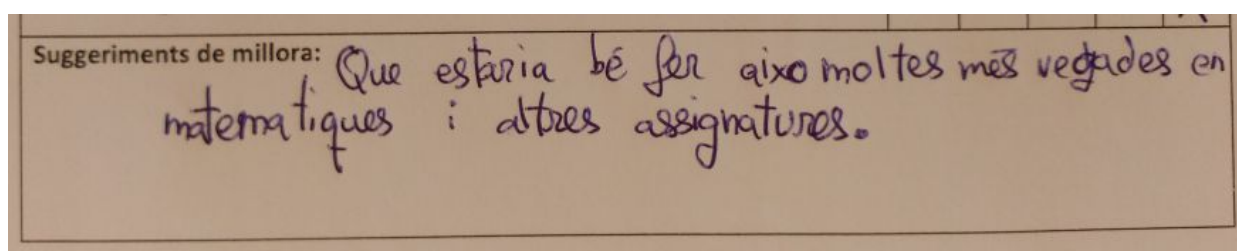 Suggeriments de millora: Que estaria bé fer aixo moltes més vegades en
matematiques i altres assignatures.